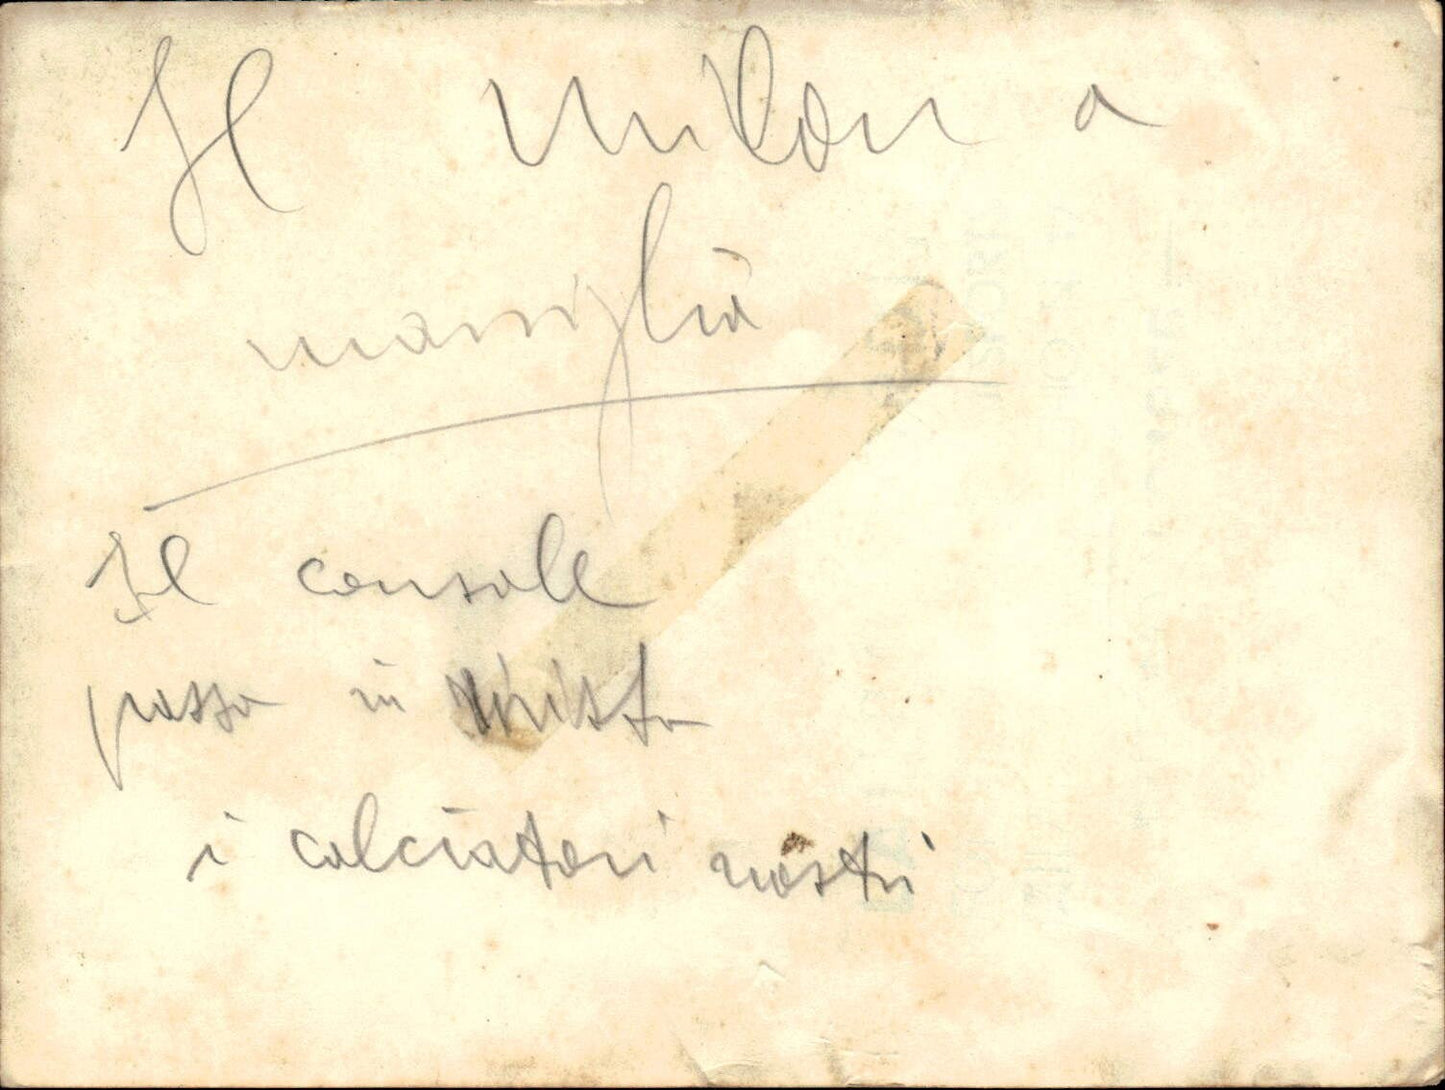 Il Milan a
marsiglia
Il console
passa in rivista
i calciatori nostri